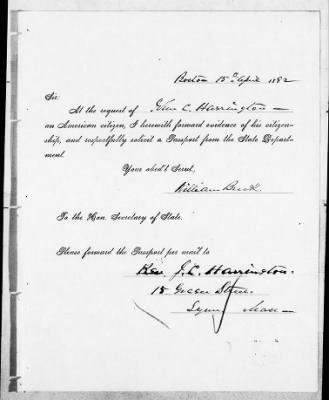 Boston 15th April 1882
Sir
At the request of John C. Harrington
an American citizen, I herewith forward evidence of his citizen-
ship, and respectfully solicit a Passport from the State Depart-
ment
Your obed't Servt,
William
To the Hon. Secretary of State.
Please forward the Passport per mail to
Rev. J. C. Harrington.
15 Green Street
Lynn Mass